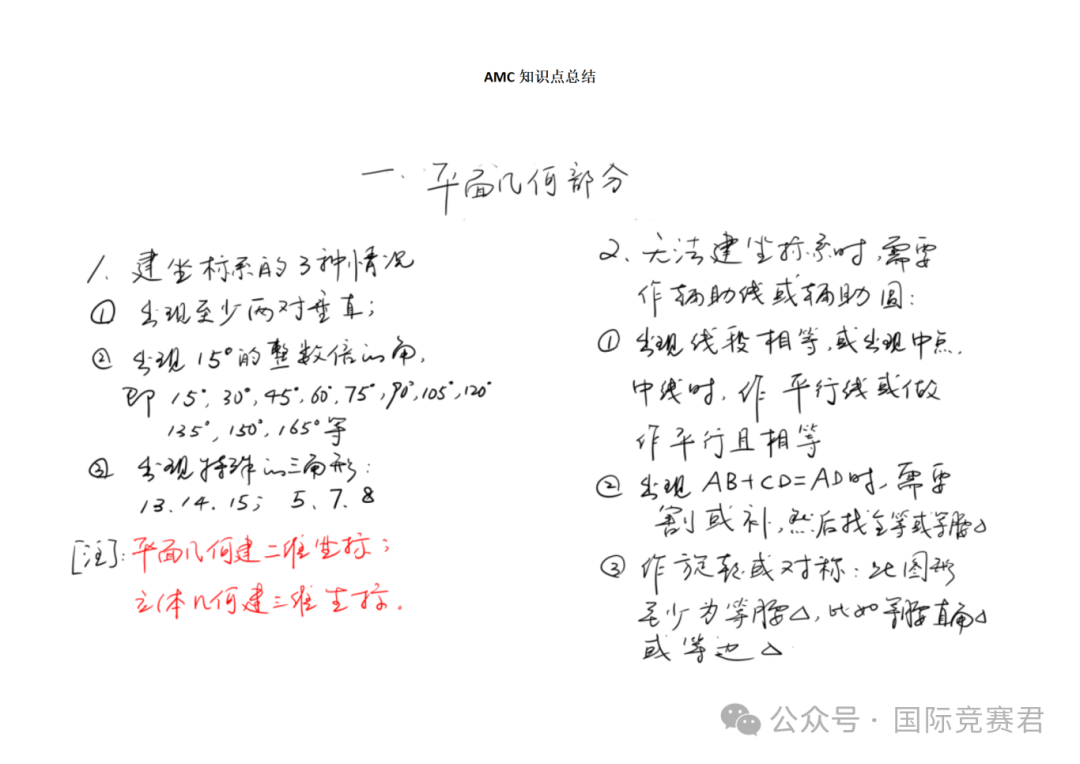 AMC 知识点总结
一. 平面几何部分
1. 建坐标系的3种情况
① 出现至少两对垂直;
② 出现15°的整数倍的角,
即 15°, 30°, 45°, 60°, 75°, 90°, 105°, 120°
135°, 150°, 165°等
③ 出现特殊的三角形:
13. 14. 15; 5、7、8
[注]: 平面几何建二维坐标;
立体几何建三维坐标.
2. 无法建坐标系时,需要
作辅助线或辅助圆:
① 出现线段相等,或出现中点,
中线时, 作 平行线或做
作平行且相等
② 出现 AB+CD=AD时, 需要
割或补, 然后找全等或等腰△
③ 作旋转或对称: 此图形
至少为等腰△, 比如等腰直角△
或等边△
公众号 · 国际竞赛君